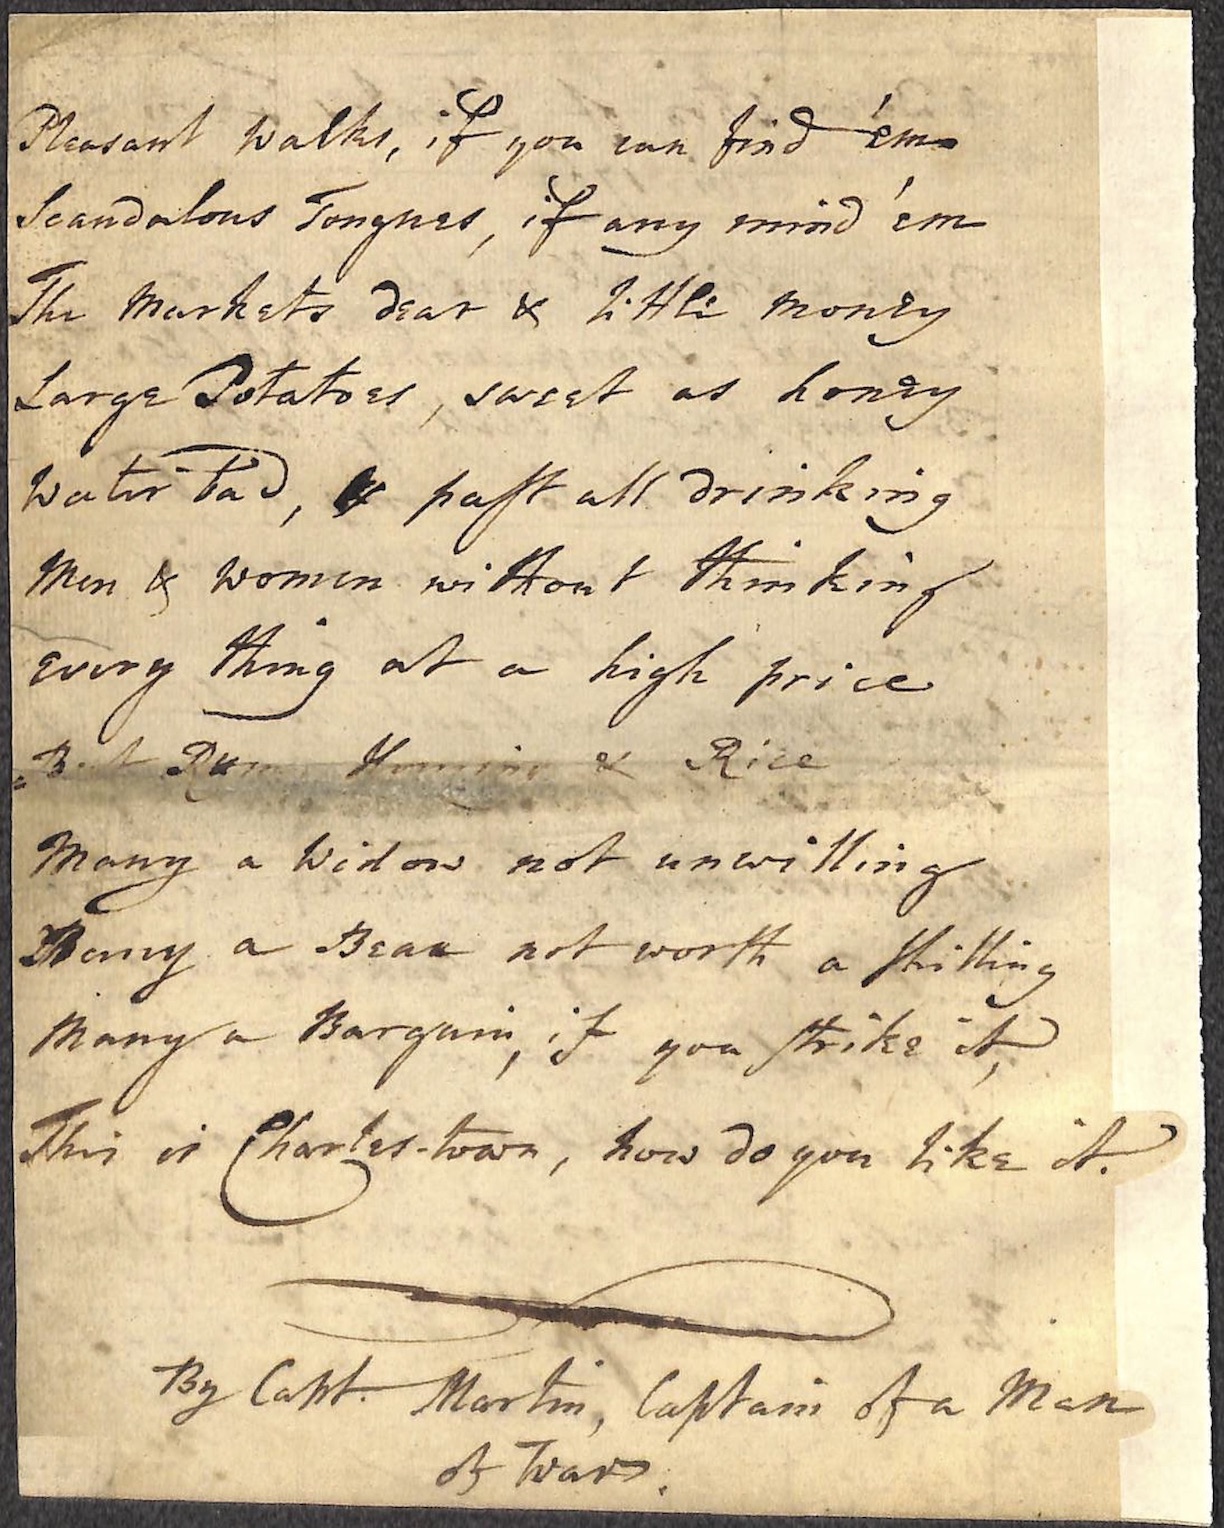 Pleasant Walks, if you can find 'em
Scandalous Tongues, if any mind 'em
The Markets dear & little money
Large Potatoes, sweet as honey
Water bad, & past all drinking
Men & Women without thinking
Every thing at a high price
But Rum, Hominy & Rice
Many a Widow not unwilling
Many a Beau not worth a shilling
Many a Bargain, if you strike it,
This is Charles-town, how do you like it.
By Capt. Martin, Captain of a Man
of War.